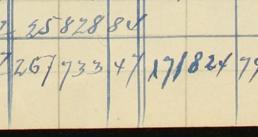 25 828 84
267 733 47 171824 79